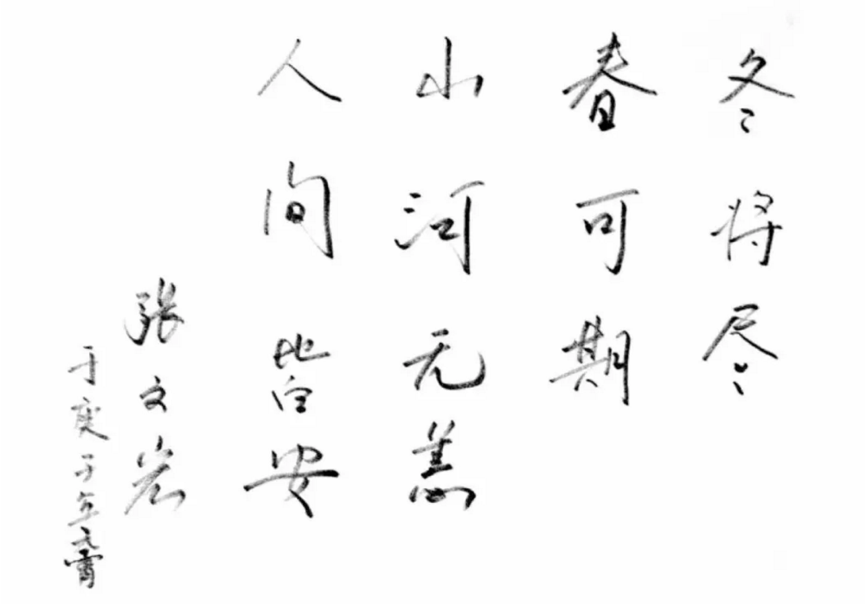 冬将尽
春可期
山河无恙
人间皆安
张文岩
于庚子年元宵